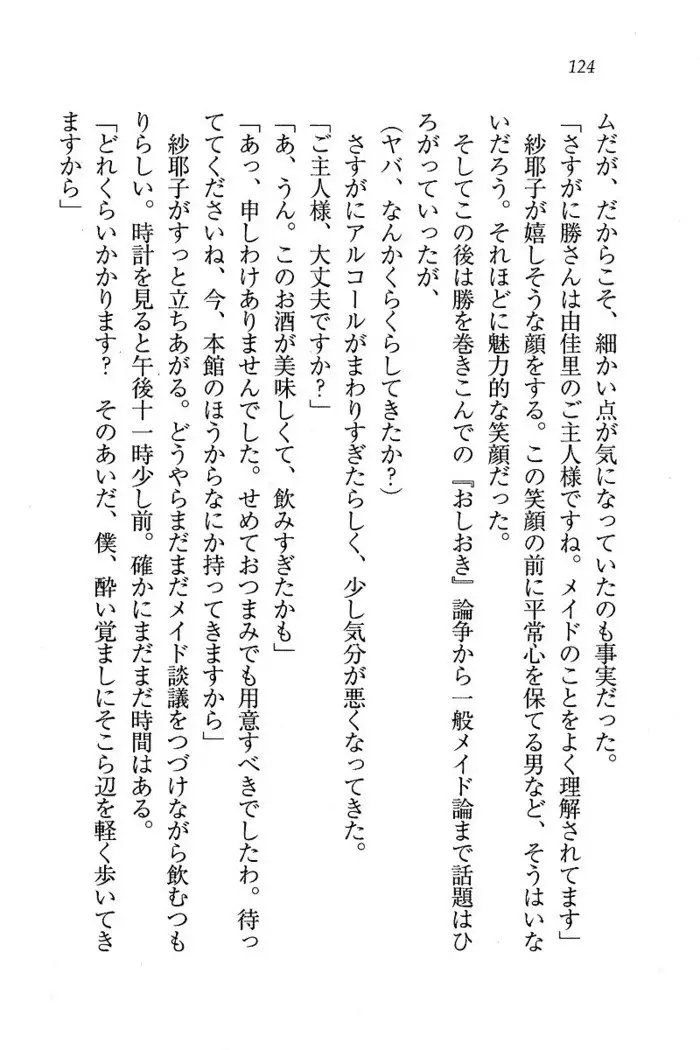 124
ムだが、だからこそ、細かい点が気になっていたのも事実だった。
「さすがに勝さんは由佳里のご主人様ですね。メイドのことをよく理解されてます」
紗耶子が嬉しそうな顔をする。この笑顔の前に平常心を保てる男など、そうはいな
いだろう。それほどに魅力的な笑顔だった。
そしてこの後は勝を巻きこんでの『おしおき』論争から一般メイド論まで話題はひ
ろがっていったが、
(ヤバ、なんかくらくらしてきたか?)
さすがにアルコールがまわりすぎたらしく、少し気分が悪くなってきた。
「ご主人様、大丈夫ですか?」
「あ、うん。このお酒が美味しくて、飲みすぎたかも」
「あっ、申しわけありませんでした。せめておつまみでも用意すべきでしたわ。待っ
ててくださいね、今、本館のほうからなにか持ってきますから」
紗耶子がすっと立ちあがる。どうやらまだまだメイド談議をつづけながら飲むつも
りらしい。時計を見ると午後十一時少し前。確かにまだまだ時間はある。
「どれくらいかかります? そのあいだ、僕、酔い覚ましにそこら辺を軽く歩いてき
ますから」